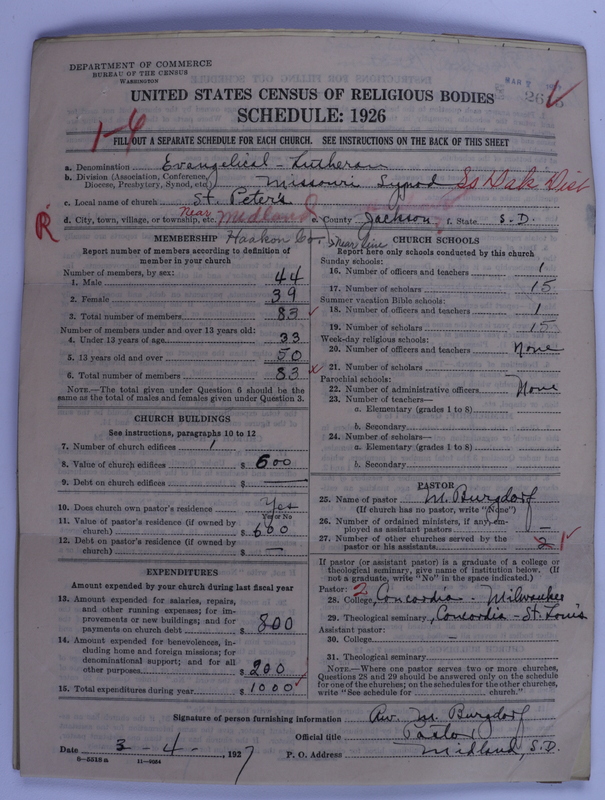 DEPARTMENT OF COMMERCE
BUREAU OF THE CENSUS
WASHINGTON
MAR 7
UNITED STATES CENSUS OF RELIGIOUS BODIES
SCHEDULE: 1926
1-6
FILL OUT A SEPARATE SCHEDULE FOR EACH CHURCH. SEE INSTRUCTIONS ON THE BACK OF THIS SHEET
a. Denomination Evangelical - Lutheran
b. Division (Association, Conference, Diocese, Presbytery, Synod, etc.) Missouri Synod So Dak. Dist
c. Local name of church St. Peters
R
d. City, town, village, or township, etc. Near Midland e. County Jackson f. State S. D.
Haakon Co.
MEMBERSHIP
Report number of members according to definition of member in your church
Number of members, by sex:
1. Male 44
2. Female 39
3. Total number of members 83
Number of members under and over 13 years old:
4. Under 13 years of age 33
5. 13 years old and over 50
6. Total number of members 83
NOTE.—The total given under Question 6 should be the same as the total of males and females given under Question 3.
CHURCH BUILDINGS
See instructions, paragraphs 10 to 12
7. Number of church edifices 1
8. Value of church edifices $ 600
9. Debt on church edifices $ —
10. Does church own pastor's residence Yes
Yes or No
11. Value of pastor's residence (if owned by church) $ 600
12. Debt on pastor's residence (if owned by church) $ —
EXPENDITURES
Amount expended by your church during last fiscal year
13. Amount expended for salaries, repairs, and other running expenses; for improvements or new buildings; and for payments on church debt $ 800
14. Amount expended for benevolences, including home and foreign missions; for denominational support; and for all other purposes $ 200
15. Total expenditures during year $ 1000
CHURCH SCHOOLS
Report here only schools conducted by this church
Sunday schools:
16. Number of officers and teachers 1
17. Number of scholars 15
Summer vacation Bible schools:
18. Number of officers and teachers 1
19. Number of scholars 15
Week-day religious schools:
20. Number of officers and teachers None
21. Number of scholars
Parochial schools:
22. Number of administrative officers None
23. Number of teachers—
a. Elementary (grades 1 to 8)
b. Secondary
24. Number of scholars—
a. Elementary (grades 1 to 8)
b. Secondary
PASTOR
25. Name of pastor M. Burgdorf
(If church has no pastor, write "None")
26. Number of ordained ministers, if any, employed as assistant pastors —
27. Number of other churches served by the pastor or his assistants 2 1
If pastor (or assistant pastor) is a graduate of a college or theological seminary, give name of institution below. (If not a graduate, write "No" in the space indicated.)
Pastor: 2
28. College Concordia - Milwaukee
29. Theological seminary Concordia - St. Louis
Assistant pastor:
30. College —
31. Theological seminary
NOTE.—Where one pastor serves two or more churches, Questions 28 and 29 should be answered only on the schedule for one of the churches; on the schedules for the other churches, write "See schedule for church."
Signature of person furnishing information Rev. M. Burgdorf
Official title Pastor
Date 3 - 4 - 1927 P. O. Address Midland, S. D.
6-5518a 11-8064